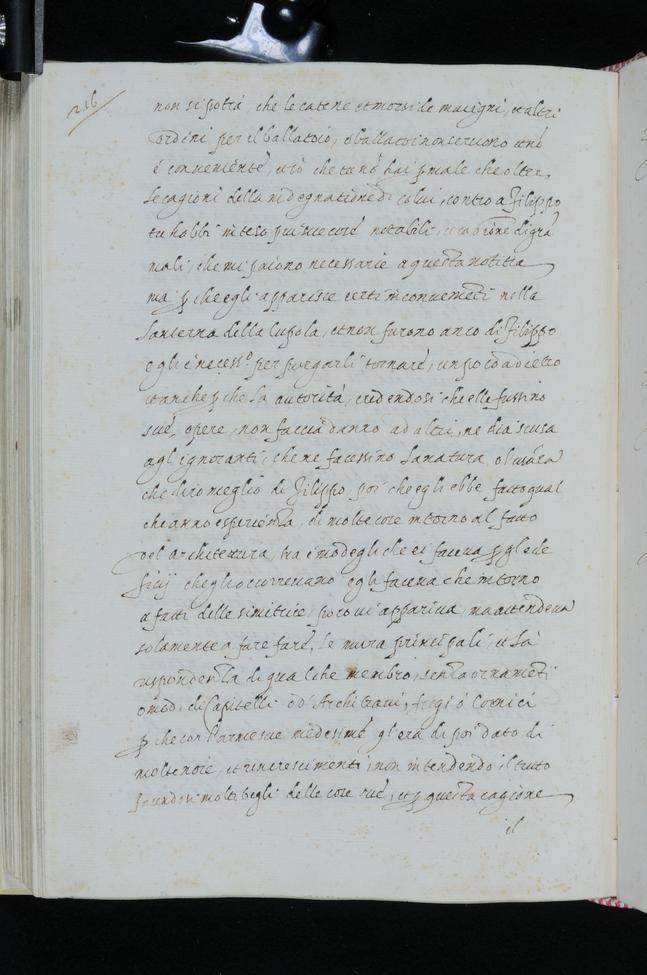 216
non si potrà, che le catene et morsi de macigni, et altri
ordini per il ballatoio, o ballatoi non servono et nō
é conveniente, et ció che tu nō hai ꝑ male che oltre,
le cagioni della indegnatione di colui, contro a Filippo
tu habbi inteso piu sue cose notabili, et cagione di grā
mali, che mi paiono necessarie a questa notitia
ma ꝑ che egli apparisce certi inconvenieti nella
lanterna della Cupola, et non furono anco di Filippo
egli é necess.o per purgarli tornare, un poco adietro
et anche ꝑ che la autorità, credendosi che elle fussino
sue, opere, non faccia danno ad altri, ne dia scusa
agl ignoranti, che ne facessino la natura, o l usāza
che dirò meglio di Filippo, poi che egli ebbe fatto qual
che anno esperienza, di molte cose intorno al fatto
del architettura, tra é modegli che ei faceva ꝑ gl ede
ficij che gli occorrevano egli faceva che intorno
a fatti delle simitrie, poco vi appariva, ma attendeva
solamente a fare fare, le mura principali, et la
rispondenza di qualche membro, senza ornameti
o modi di Capitelli o d'Architravi, fregi ó Cornici
ꝑ che con l arme sue medesime gl era di poi dato di
molte noie, et rincrescimenti, non intendendo il tutto
facendosi molti begli delle cose sue, et ꝑ questa cagione
il